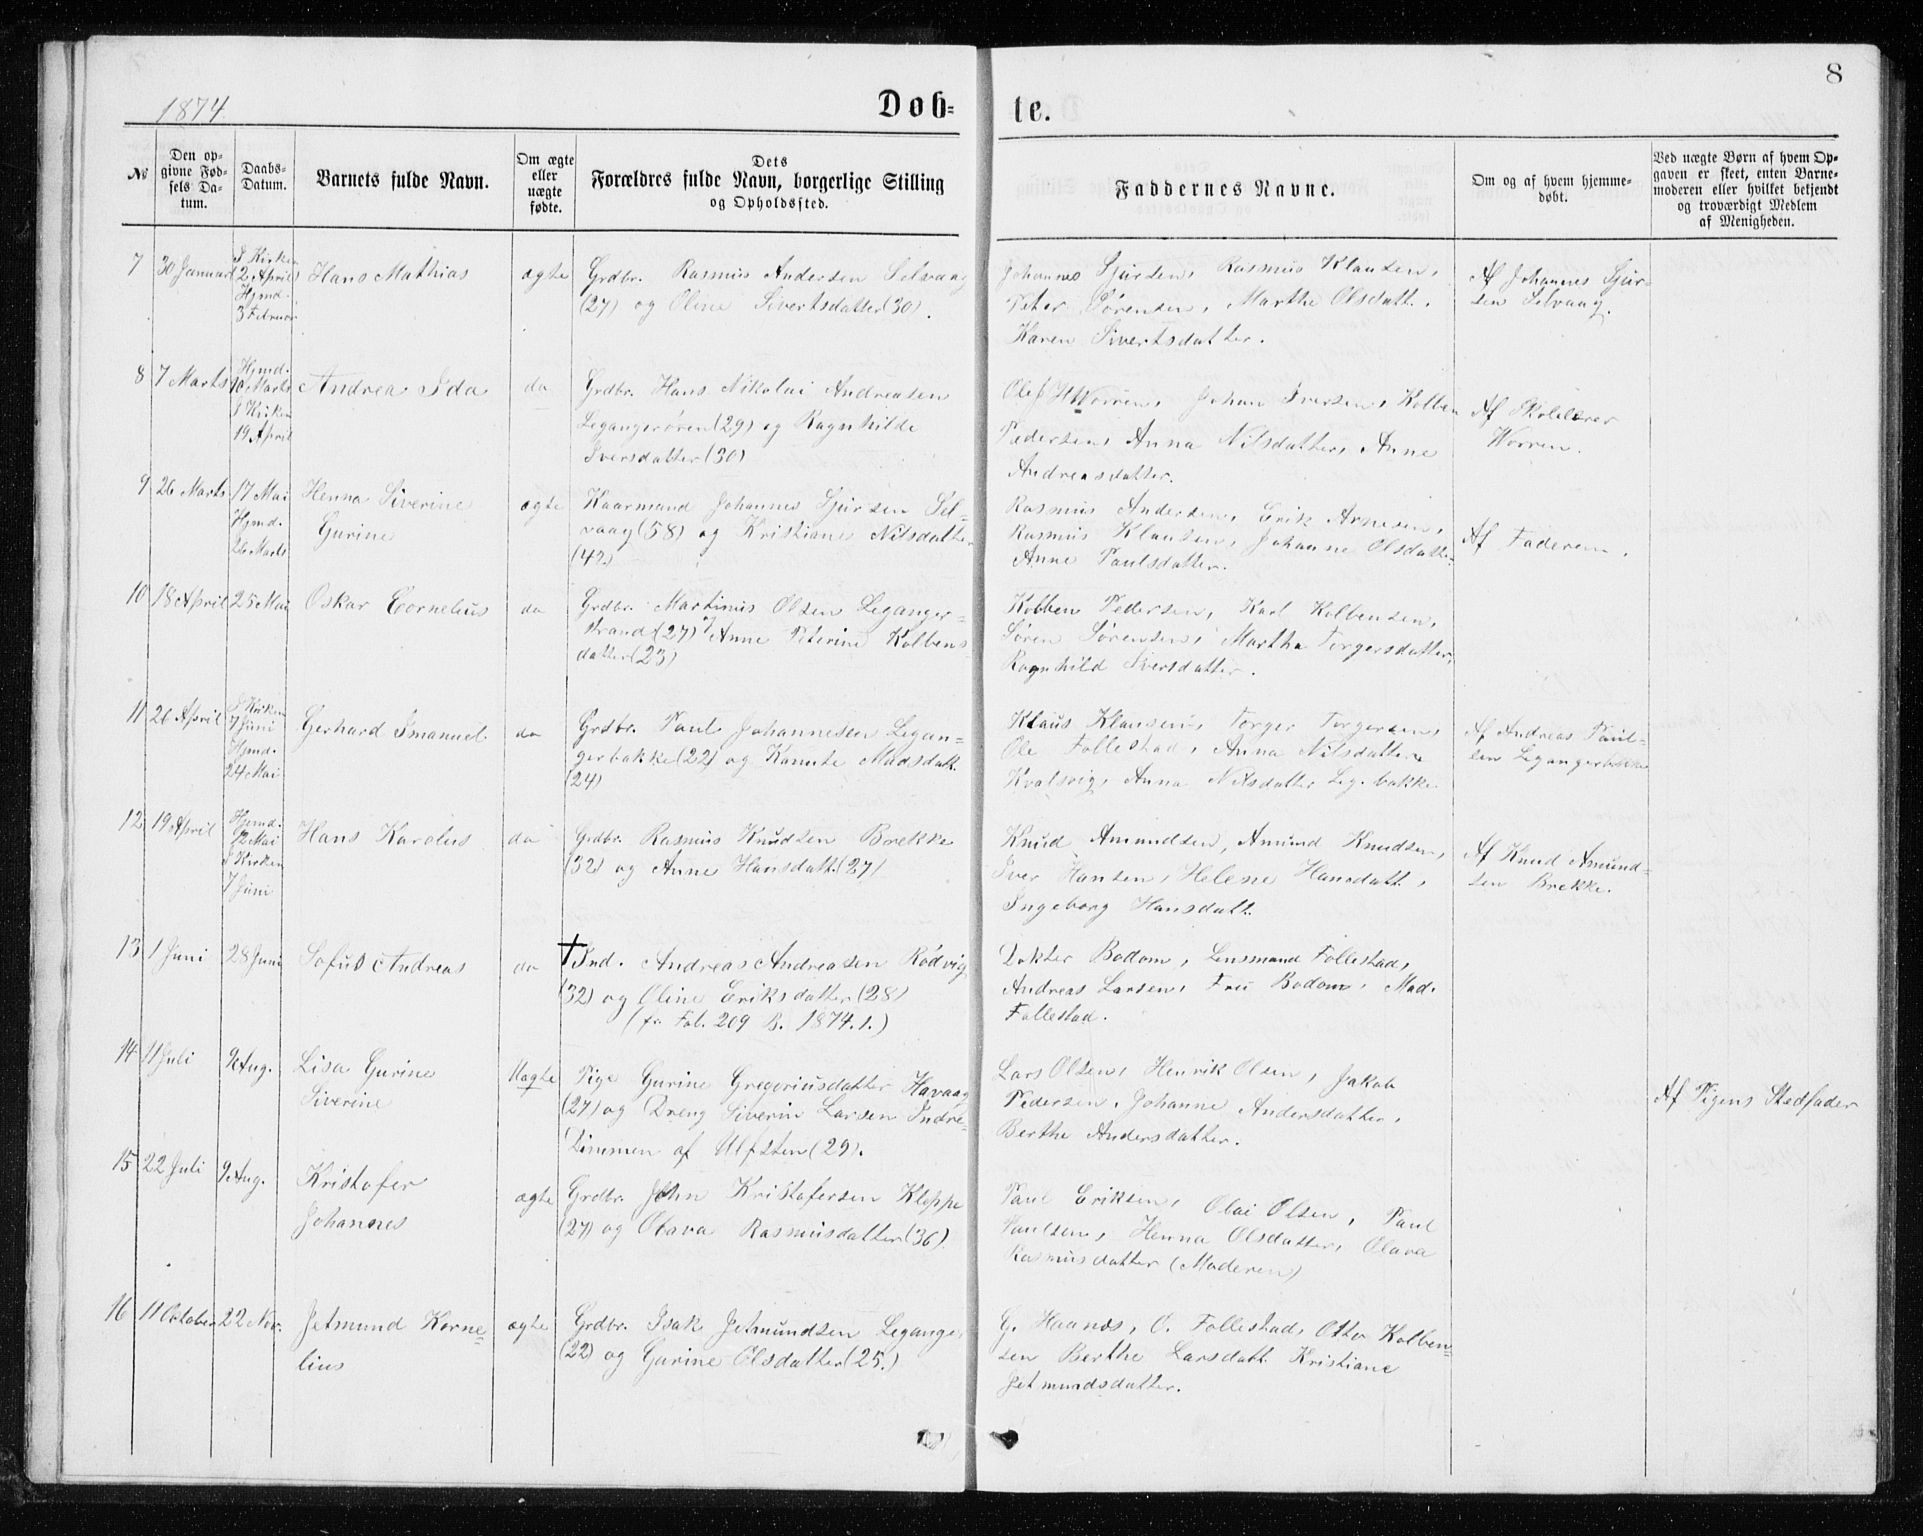 8
1874
Døb-
te.
№
Den op-
givne Fød-
sels Da-
tum.
Daabs-
Datum.
Barnets fulde Navn.
Om ægte
eller
uægte
fødte.
Dets
Forældres fulde Navn, borgerlige Stilling
og Opholdssted.
Faddernes Navne.
Om og af hvem hjemme-
døbt.
Ved uægte Børn af hvem Op-
gaven er skeet, enten Barne-
moderen eller hvilket bekjendt
og troværdigt Medlem
af Menigheden.
7
30 Januar
I Kirken
2 April
Hjmd.
3 Februar
Hans Mathias
ægte
Grdbr. Rasmus Andersen Selvaag
(27) og Oline Sivertsdatter (30).
Johannes Sjursen, Rasmus Klausen,
Peter Sørensen, Marthe Olsdatt.,
Karen Sivertsdatter.
Af Johannes Sjur-
sen Selvaag.
8
7 Marts
Hjmd.
10 Marts
I Kirken
19 April
Andrea Ida
do
Grdbr. Hans Nikolai Andreasen
Legangerøren (29) og Ragnhilde
Iversdatter (30)
Olef H Worren, Johan Iversen, Kolben
Pedersen, Anna Nilsdatter, Anne
Andreasdatter.
Af Skolelærer
Worren.
9
26 Marts
17 Mai
Hjmd.
26 Marts
Henna Siverine
Gurine
ægte
Kaarmand Johannes Sjursen Sel-
vaag (58) og Kristiane Nilsdatter
(42)
Rasmus Andersen, Erik Arnesen,
Rasmus Klausen, Johanne Olsdatter
Anne Paulsdatter.
Af Faderen.
10
18 April
25 Mai
Oskar Cornelius
do
Grdbr. Martinus Olsen Leganger-
strand (27) & Anne Peterine Kolbens
datter (23)
Kolben Pedersen, Karl Kolbensen,
Søren Sørensen, Martha Torgersdatter,
Ragnhild Iversdatter.
11
26 April
I Kirken
7 Juni
Hjmd.
24 Mai
Gerhard Imanuel
do
Grdbr. Paul Johannesen Legan-
gerbakke (22) og Kanute Madsdatt.
(24)
Klaus Klausen, Torger Torgersen,
Ole Follestad, Anna Nilsdatter
Kvalsvig, Anna Nilsdatter Leg. bakke
Af Andreas Paul-
sen Legangerbakke
12
19 April
Hjemd.
12 Mai
I Kirken
7 Juni
Hans Karolus
do
Grdbr. Rasmus Knudsen Brekke
(32) og Anne Hansdatt. (27)
Knud Amundsen, Amund Knudsen,
Iver Hansen, Helene Hansdatt.,
Ingeborg Hansdatt.
Af Knud Amund-
sen Brekke.
13
1 Juni
28 Juni
Sofus Andreas
do
† Ind. Andreas Andreasen Rødvig
(32) og Oline Eriksdatter (28)
(fr. Fol. 209 B. 1874. 1.)
Dokter Bodom, Lensmand Follestad,
Andreas Larsen, Fru Bodom, Mad.
Follestad.
14
11 Juli
9 Aug.
Lisa Gurine
Siverine
Uægte
Pige Gurine Gregoriusdatter Havaag
(27) og Dreng Siverin Larsen Indre-
Dimmen af Ulfsten (29).
Lars Olsen, Henrik Olsen, Jakob
Pedersen, Johanne Andersdatter,
Berthe Andersdatter.
Af Pigens Stedfader
15
22 Juli
9 Aug.
Kristofer
Johannes
ægte
Grdbr. John Kristofersen Kleppe
(27) og Olava Rasmusdatter (36)
Paul Eriksen, Olai Olsen, Paul
Paulsen, Henna Olsdatter, Olava
Rasmusdatter (Moderen)
16
11 October
22 Nov.
Jetmund Korne-
lius
ægte
Grdbr. Isak Jetmundsen Leganger
(22) og Gurine Olsdatter (25.)
G. Haanes, O. Follestad, Otto Kolben-
sen Berthe Larsdatt. Kristiane
Jetmundsdatter.